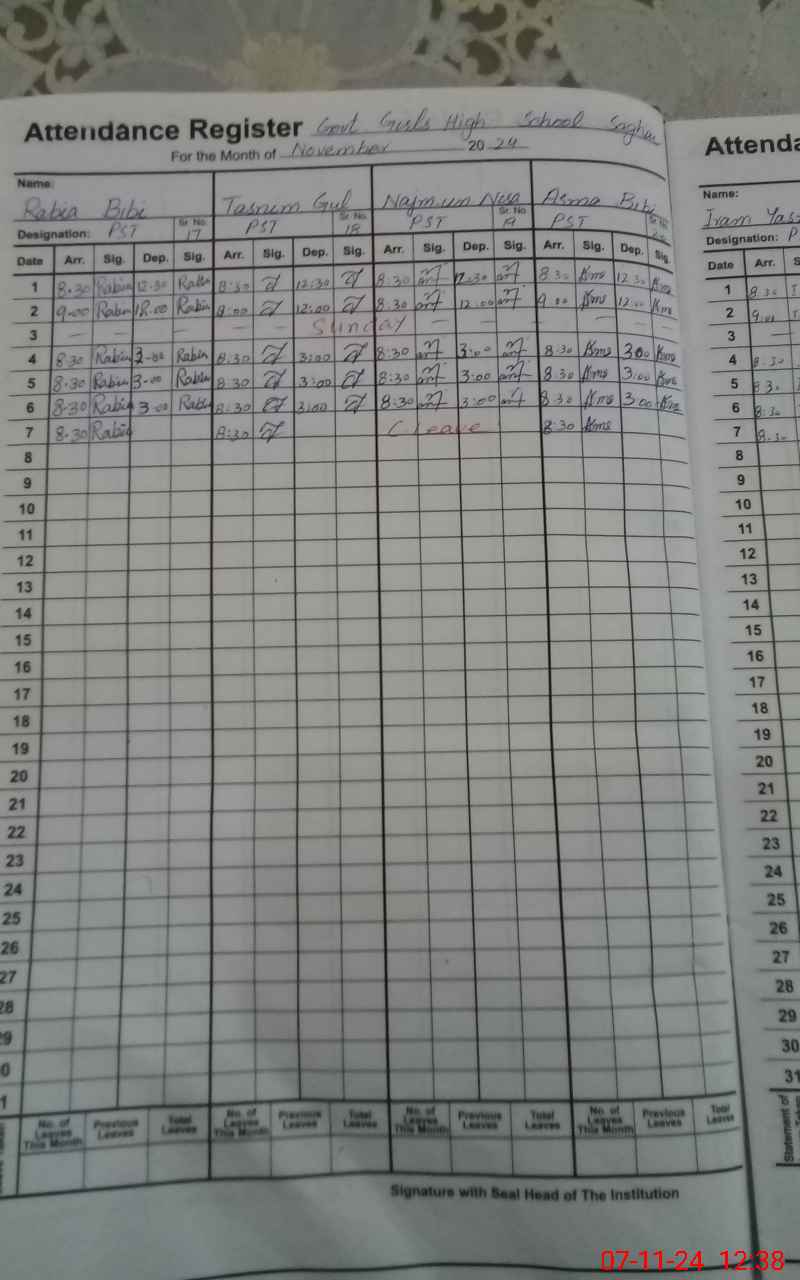 Attendance Register Govt Girls High School Saghar
For the Month of November 20 24
Name: Rabia Bibi Tasnim Gul Najmun Nisa Asma Bibi
Designation: PST Sr. No. 17 PST Sr. No. 18 PST Sr. No. 19 PST Sr. No.
Date Arr. Sig. Dep. Sig. Arr. Sig. Dep. Sig. Arr. Sig. Dep. Sig. Arr. Sig. Dep. Sig.
1 8.30 Rabia 12.30 Rabia 8:30 12:30 8:30 12.30 8.30 12.30
2 9.00 Rabia 12.00 Rabia 9:00 12:00 8.30 12:00 9.00 12.00
3 — — — — — — Sunday — — — — —
4 8.30 Rabia 3.00 Rabia 8:30 3:00 8:30 3:00 8.30 3.00
5 8.30 Rabia 3.00 Rabia 8.30 3:00 8:30 3:00 8.30 3.00
6 8.30 Rabia 3.00 Rabia 8:30 3:00 8:30 3:00 8.30 3.00
7 8.30 Rabia 8:30 C leave 8:30
8
9
10
11
12
13
14
15
16
17
18
19
20
21
22
23
24
25
26
27
28
9
0
1
No. of Leaves This Month Previous Leaves Total Leaves No. of Leaves This Month Previous Leaves Total Leaves No. of Leaves This Month Previous Leaves Total Leaves No. of Leaves This Month Previous Leaves Total Leaves
Signature with Seal Head of The Institution
Attenda
Name:
Iram Yas
Designation: P
Date Arr. S
1 8.30
2 9.00
3
4 8.30
5 8.30
6 8.30
7 8.30
8
9
10
11
12
13
14
15
16
17
18
19
20
21
22
23
24
25
26
27
28
29
30
31
Statement of
07-11-24 12:38